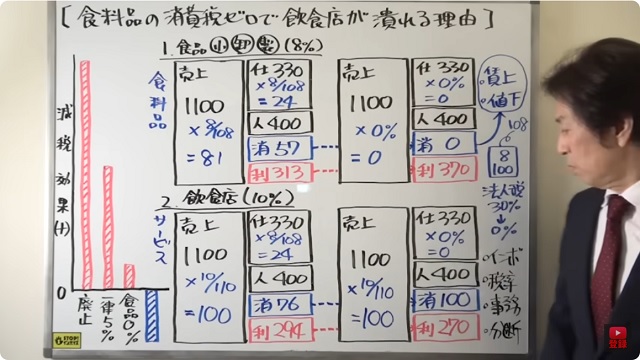 [食料品の消費税ゼロで飲食店が潰れる理由]
1.食品小卸製(8%)
減税効果(+)
0
廃止
一律5%
食品0%
食料品
売上
1100
×8/108
=81
仕330
×8/108
=24
人400
消57
利313
売上
1100
×0%
=0
仕330
×0%
=0
人400
消 0
利370
・賃上
・値下
108
8
100
法人税
30%
↓
0%
2.飲食店(10%)
サービス
売上
1100
×10/110
=100
仕330
×8/108
=24
人400
消76
利294
売上
1100
×10/110
=100
仕330
×0%
=0
人400
消100
利270
・インボ
・税率
・事務
・分断
登録